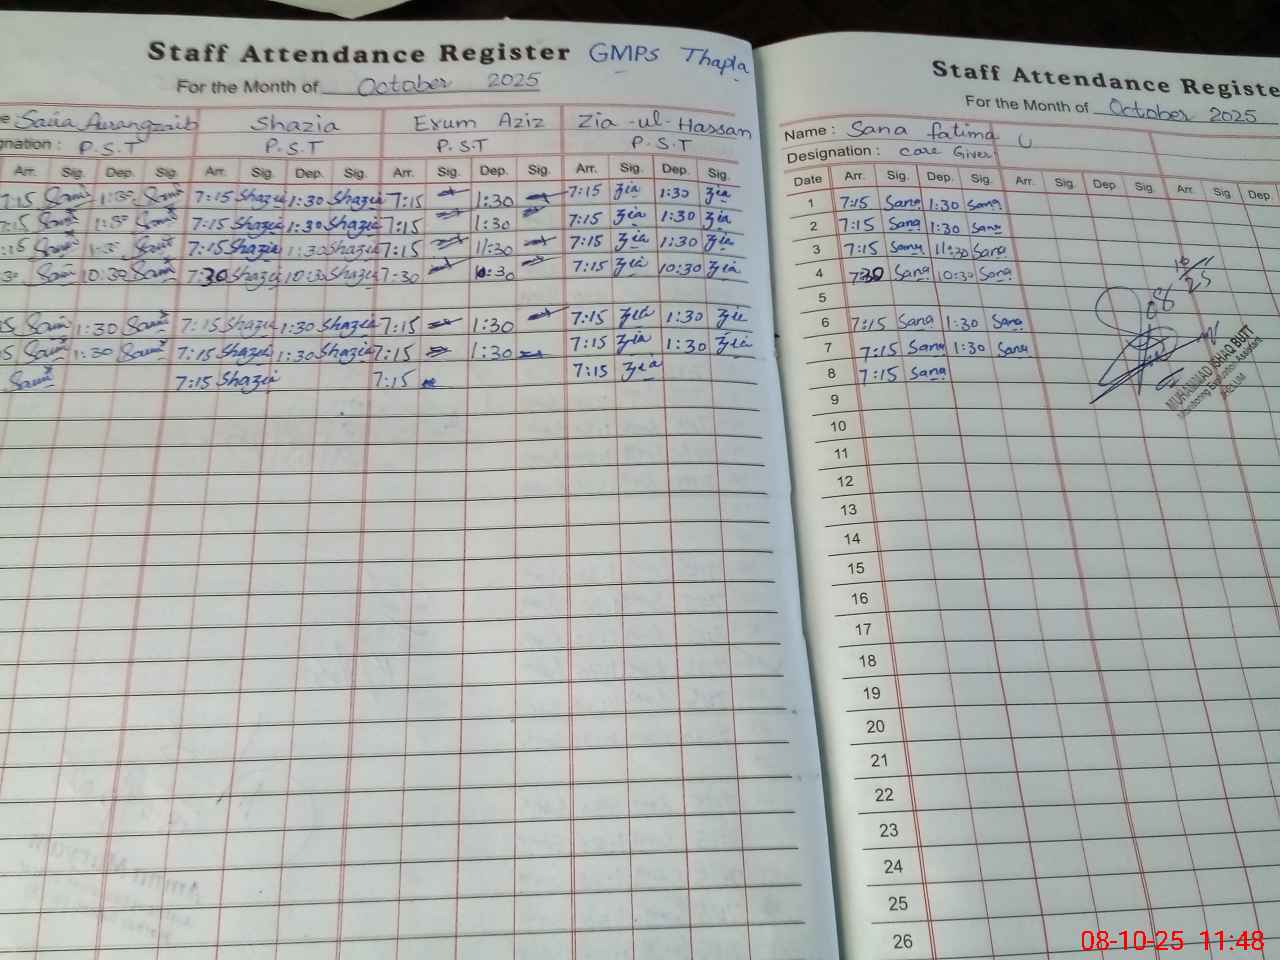 Staff Attendance Register GMPS Thapla
For the Month of October 2025
Saira Aurangzaib Shazia Exum Aziz Zia-ul-Hassan
gnation: P.S.T P.S.T P.S.T P.S.T
Arr. Sig. Dep. Sig. Arr. Sig. Dep. Sig. Arr. Sig. Dep. Sig. Arr. Sig. Dep. Sig.
7:15 1:30 7:15 Shazia 1:30 Shazia 7:15 1:30 7:15 Zia 1:30 Zia
7:15 1:30 7:15 Shazia 1:30 Shazia 7:15 1:30 7:15 Zia 1:30 Zia
:15 7:15 Shazia 11:30 Shazia 7:15 11:30 7:15 Zia 1:30 Zia
30 10:30 7:30 Shazia 10:30 Shazia 7:30 10:30 7:15 Zia 10:30 Zia
1:30 7:15 Shazia 1:30 Shazia 7:15 1:30 7:15 Zia 1:30 Zia
1:30 7:15 Shazia 1:30 Shazia 7:15 1:30 7:15 Zia 1:30 Zia
7:15 Shazia 7:15 7:15 Zia
Staff Attendance Registe
For the Month of October 2025
Name : Sana fatima
Designation : Care Giver
Date Arr. Sig. Dep. Sig. Arr. Sig. Dep Sig. Arr. Sig. Dep.
1 7:15 Sana 1:30 Sana
2 7:15 Sana 1:30 Sana
3 7:15 Sana 11:30 Sana
4 7:30 Sana 10:30 Sana
5
6 7:15 Sana 1:30 Sana
7 7:15 Sana 1:30 Sana
8 7:15 Sana
9
10
11
12
13
14
15
16
17
18
19
20
21
22
23
24
25
26
08 10/25
MUHAMMAD ISHAQ BUTT
Monitoring Evaluation Assistant
JHELUM
08-10-25 11:48